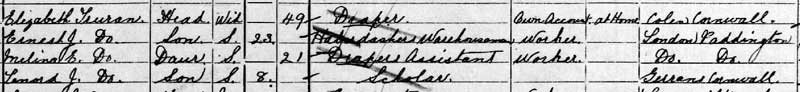 Elizabeth Teuran Head Wid. 49 Draper. Own Account. at Home Colen Cornwall.
Ernest J. Do. Son S. 23. Haberdashers Warehouseman Worker. London Paddington
Melina E. Do. Daur. S. 21 Drapers Assistant Worker Do. Do.
Lenard J. Do Son S. 8. Scholar. Gerrans Cornwall.